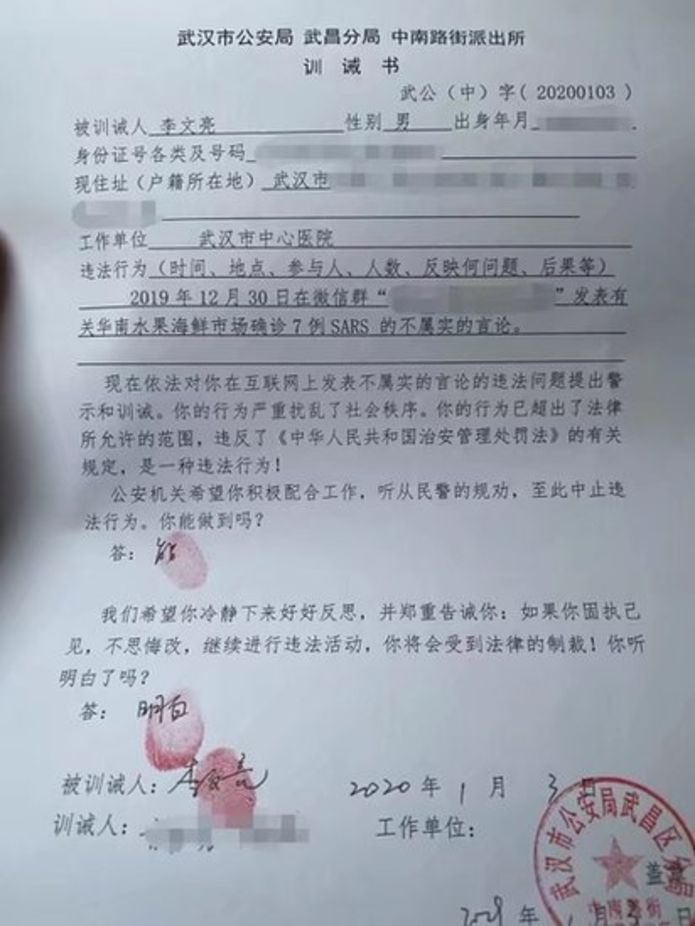 武汉市公安局 武昌分局 中南路街派出所
训 诫 书
武公(中)字( 20200103 )
被训诫人 李文亮 性别 男 出身年月
身份证号各类及号码
现住址(户籍所在地) 武汉市
工作单位 武汉市中心医院
违法行为(时间、地点、参与人、人数、反映何问题、后果等)
2019 年 12 月 30 日在微信群“ ”发表有
关华南水果海鲜市场确诊 7 例 SARS 的不属实的言论。
现在依法对你在互联网上发表不属实的言论的违法问题提出警
示和训诫。你的行为严重扰乱了社会秩序。你的行为已超出了法律
所允许的范围，违反了《中华人民共和国治安管理处罚法》的有关
规定，是一种违法行为！
公安机关希望你积极配合工作，听从民警的规劝，至此中止违
法行为。你能做到吗？
答： 能
我们希望你冷静下来好好反思，并郑重告诫你：如果你固执己
见，不思悔改，继续进行违法活动，你将会受到法律的制裁！你听
明白了吗？
答： 明白
被训诫人： 李文亮 2020 年 1 月 3 日
训诫人： 工作单位：
武汉市公安局武昌区
中南路街
年 月 日